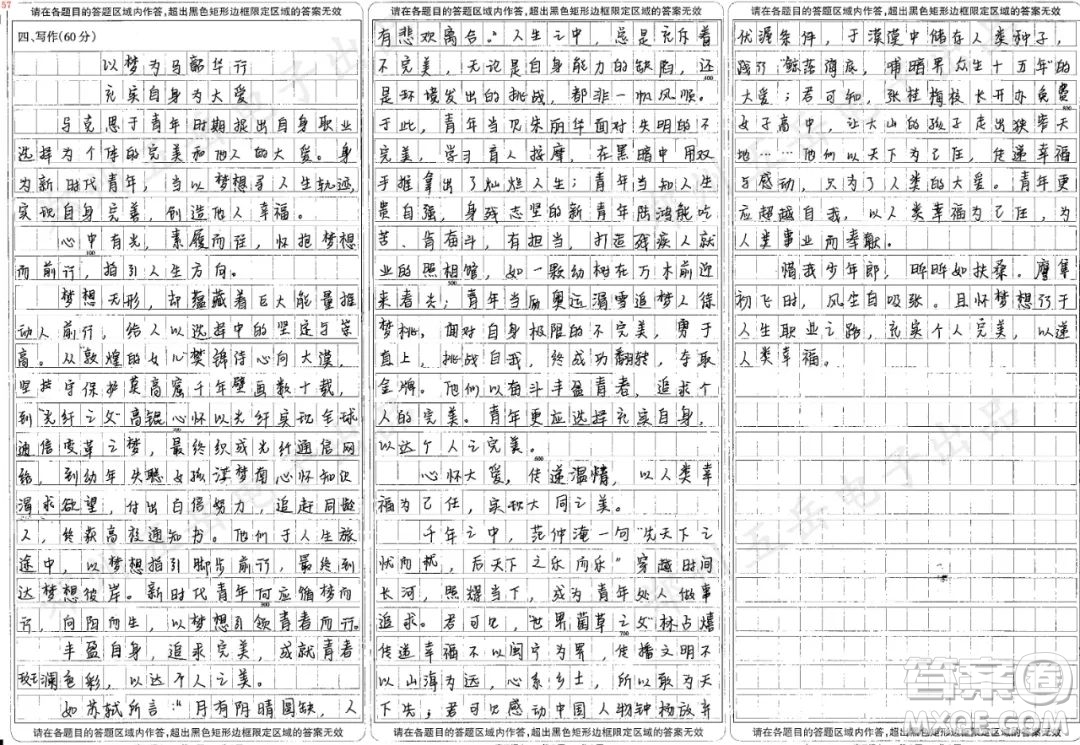 57
请在各题目的答题区域内作答,超出黑色矩形边框限定区域的答案无效
四、写作(60分)
以梦为马韶华行
充实自身为大爱
马克思于青年时期提出自身职业
选择为个体的完美和他人的大爱。身
为新时代青年,当以梦想寻人生轨迹,
实现自身完善,创造他人幸福。
心中有光,素履而往,怀抱梦想
而前行,指引人生方向。
梦想无形,却蕴藏着巨大能量推
动人前行,给人以选择中的坚定与崇
高。从敦煌的女儿樊锦诗心向大漠,
坚守保护莫高窟千年壁画数十载,
到“光纤之父”高锟心怀以光纤实现全球
通信变革之梦,最终织成光纤通信网
络,到幼年失聪女孩江梦南心怀知识
渴求欲望,付出百倍努力,追赶同龄
人,终获高校通知书。他们于人生旅
途中,以梦想指引脚步前行,最终到
达梦想彼岸。新时代青年何应循梦而
行,向阳而生,以梦想引领青春而行。
丰盈自身,追求完美,成就青春
斑斓色彩,以达个人之美。
如苏轼所言:“月有阴晴圆缺,人
请在各题目的答题区域内作答,超出黑色矩形边框限定区域的答案无效
请在各题目的答题区域内作答,超出黑色矩形边框限定区域的答案无效
有悲欢离合。”人生之中,总是充斥着
不完美,无论是自身能力的缺陷,还
是环境发出的挑战,都非一帆风顺。
于此,青年当见朱丽华面对失明的不
完美,学习盲人按摩,在黑暗中用双
手推拿出了灿烂人生;青年当知人生
贵自强,身残志坚的新青年陈鸿能吃
苦、肯奋斗,有担当,打造残疾人就
业的照相馆,如一颗幼树在万木前迎
来春天;青年当励奥运滑雪追梦人徐
梦桃,面对自身极限的不完美,勇于
直上,挑战自我,终成功翻转,夺取
金牌。他们以奋斗丰盈青春,追求个
人的完美。青年更应选择充实自身,
以达个人之完美。
心怀大爱,传递温情,以人类幸
福为己任,实现大同之美。
千年之中,范仲淹一句“先天下之
忧而忧,后天下之乐而乐”穿越时间
长河,照耀当下,成为青年处人做事
追求。君可见,“世界菌草之父”林占熺
传递幸福不以闽宁为界,传播文明不
以山海为远,心系乡土,所以敢为天
下先;君可见感动中国人物钟扬放弃
请在各题目的答题区域内作答,超出黑色矩形边框限定区域的答案无效
请在各题目的答题区域内作答,超出黑色矩形边框限定区域的答案无效
优渥条件,于漠漠中储存人类种子,
践行“鲸落海底,哺暗界众生十五年”的
大爱;君可知,张桂梅校长开办免费
女子高中,让大山的孩子走出狭窄天
地……他们以天下为己任,传递幸福
与感动,只为了人类的大爱。青年更
应超越自我,以人类幸福为己任,为
人类事业而奉献。
惜我少年郎,晔晔如扶桑。鹰隼
初飞时,风生自吸张。且怀梦想行于
人生职业之路,充实个人完美,以递
人类幸福。
请在各题目的答题区域内作答,超出黑色矩形边框限定区域的答案无效
答案港
MXQE.COM